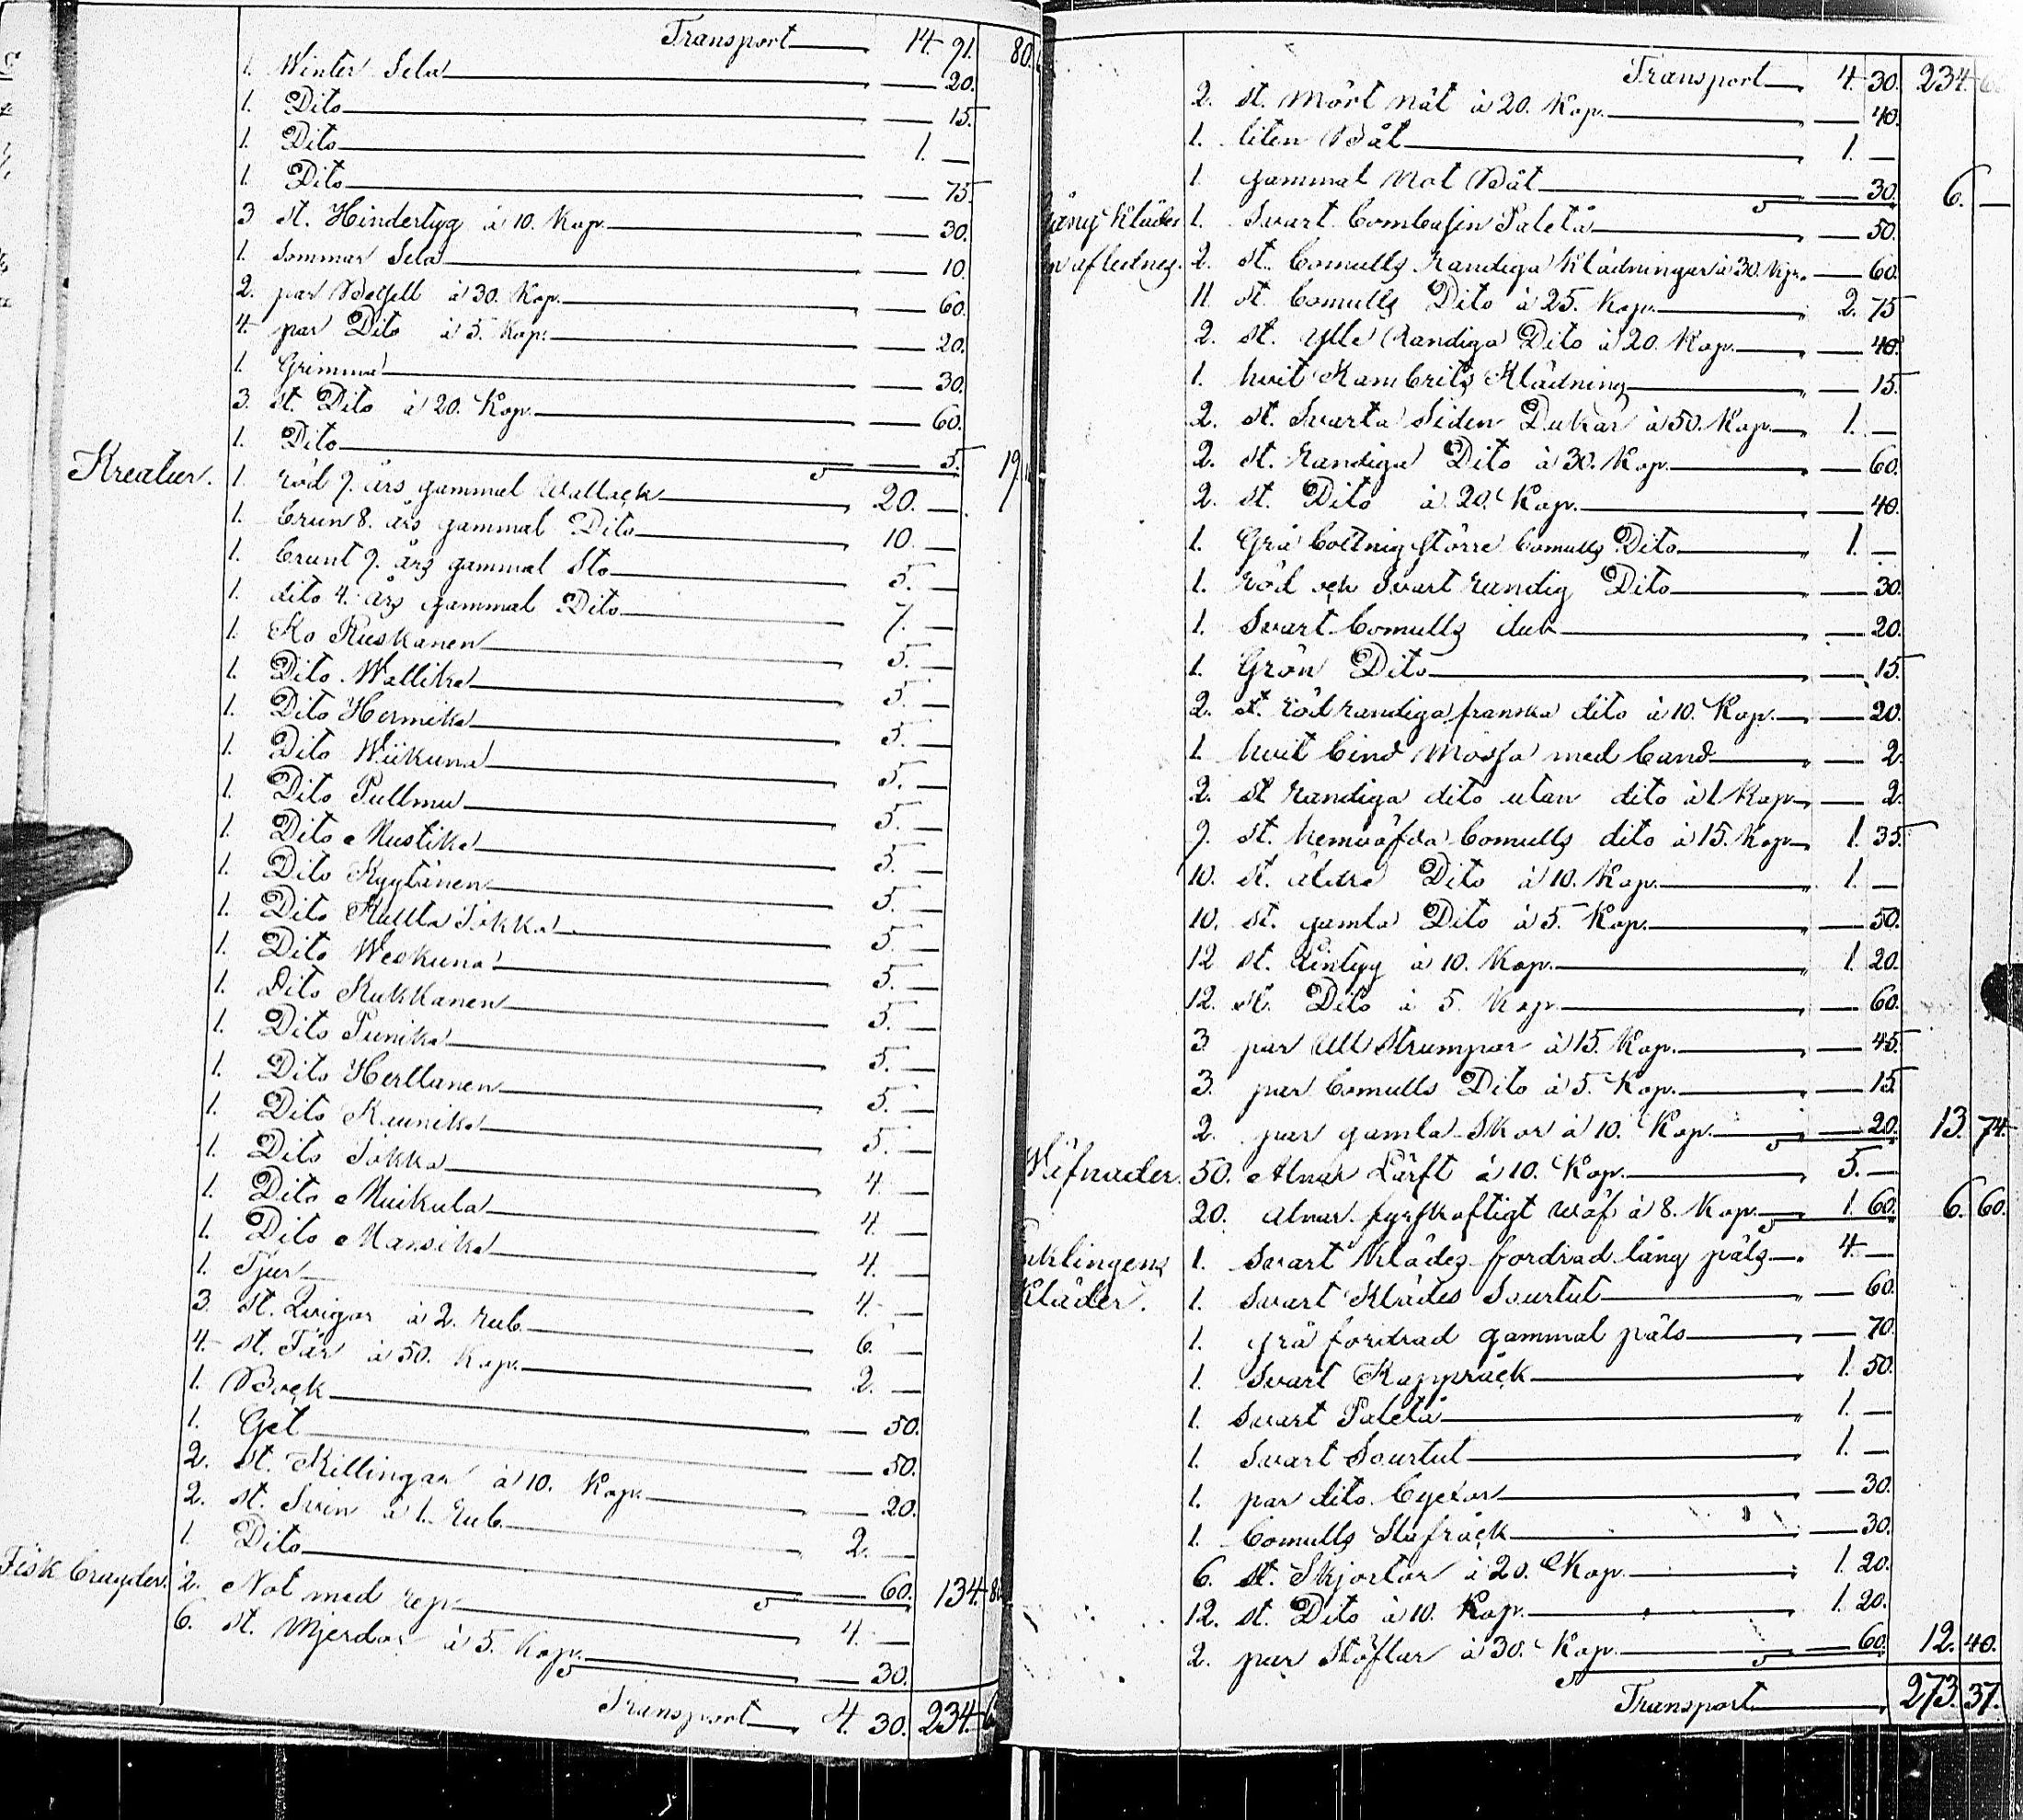 Transport 14. 91. 80.
1. Winter Sela 20.
1. Dito 15
1. Dito 1. —
1. Dito 75
3 st. Hindertyg à 10. Kop. 30.
1. Sommar Sela 10.
2. par à 30. Kop. 60.
4. par Dito à 5. Kop. 20.
1. Grimma 30.
3. st. Dito à 20. Kop. 60.
1. Dito 5. 19.
Kreatur. 1. röd 9. års gammal Wallack 20. —
1. brun 8. års gammal Dito 10. —
1. brunt 9. års gammal Sto 5. —
1. dito 4. års gammal Dito 7. —
1. Ko Ruskanen 5. —
1. Dito Wallika 5. —
1. Dito Hermika 5. —
1. Dito Wiikuna 5. —
1. Dito Pullmu 5. —
1. Dito Mustika 5. —
1. Dito Kyytänen 5. —
1. Dito Kulta Jokka 5. —
1. Dito Weokuna 5. —
1. Dito Kukkanen 5. —
1. Dito Punika 5. —
1. Dito Herttanen 5. —
1. Dito Kuunika 5. —
1. Dito Jokka 4. —
1. Dito Muikula 4. —
1. Dito Mansika 4. —
1. Tjur 4. —
3. st. Qvigor à 2. rub. 6. —
4. st. Får à 50. Kop. 2. —
1. Bock 50.
1. Get 50.
2. st. Killingar à 10. Kop. 20.
2. st. Svin à 1. Rub. 2. —
1. Dito 60. 134. 80
Fisk bragder. 2. Not med rep 4. —
6. st. Mjerdar à 5. Kop. 30.
Transport 4. 30. 234. 6
Transport 4. 30. 234. 6
2. st. Mört nät à 20. Kop. 40.
1. liten Båt 1. —
1 gammal Not Båt 30. 6. —
Gång Kläder 1. Svart Combasin Paletå 50.
afledneg. 2. st. bomulls randiga Klädningar à 30. Kop. 60.
11 st. bomulls Dito à 25. Kop. 2. 75
2. st. ylle Randiga Dito à 20. Kop. 40.
1. hvit Kambrits Klädning 15.
2. st. Svarta Siden Dukar à 50. Kop. 1. —
2. st. randiga Dito à 30. Kop. 60.
2. st. Dito à 20. Kop. 40.
1. Grå bottnig större bomulls Dito 1. —
1. röd och Svart randig Dito 30.
1. Svart bomulls duk 20.
1. Grön Dito 15
2. st. röd randiga franska dito à 10. Kop. 20.
1. hvit bind Mössa med band 2.
2. st randiga dito utan dito à 1 Kop. 2.
9. st. hemväfda bomulls dito à 15. Kop. 1. 35.
10. st. äldre Dito à 10. Kop. 1. —
10. st. gamla Dito à 5. Kop. 50.
12 st. Lintyg à 10. Kop. 1. 20.
12. st. Dito à 5. Kop. 60.
3. par Ull Strumpor à 15. Kop. 45.
3. par bomulls Dito à 5. Kop. 15.
2. par gamla Skor à 10. Kop. 20. 13. 74.
Wäfnader. 50. Alnar Lärft à 10. Kop. 5. —
20. alnar fyrskaftigt wäf à 8. Kop. 1. 60. 6. 60.
nklingens 1. Svart Klädes fordrad lång päls 4. —
Kläder. 1. Svart Klädes Sourtut 60.
1. grå fordrad gammal päls 70.
1. Svart Kappräck 1. 50.
1. Svart Paletå 1. —
1. Svart Sourtut 1. —
1. par dito byxor 30.
1. bomulls Slafråck 30.
6. st. Skjortor à 20. Kop. 1. 20.
12. st. Dito à 10. Kop. 1. 20.
2. par Stöflar à 30. Kop. 60. 12. 40.
Transport 273. 37.